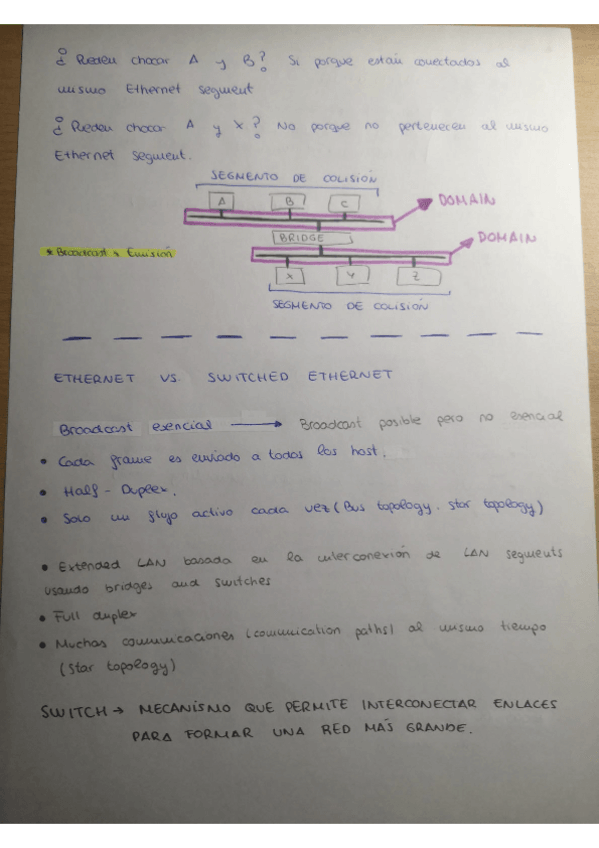 ¿ Pueden chocar A y B? Si porque están conectados al
mismo Ethernet segment
¿ Pueden chocar A y X? No porque no pertenecen al mismo
Ethernet segment.
SEGMENTO DE COLISIÓN
A B C
DOMAIN
BRIDGE
DOMAIN
* Broadcast = Emisión
X Y Z
SEGMENTO DE COLISIÓN
ETHERNET VS SWITCHED ETHERNET
Broadcast esencial → Broadcast posible pero no esencial
• Cada frame es enviado a todos los host.
• Half - Duplex.
• Solo un flujo activo cada vez (Bus topology. Star topology)
• Extended LAN basada en la interconexión de LAN segments
usando bridges and switches
• Full duplex
• Muchas comunicaciones (communication paths) al mismo tiempo
(Star topology)
SWITCH → MECANÍSMO QUE PERMITE INTERCONECTAR ENLACES
PARA FORMAR UNA RED MÁS GRANDE.